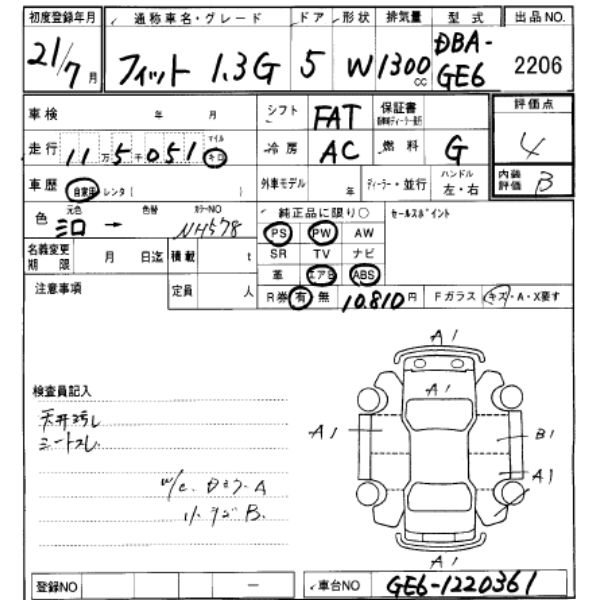 初度登録年月 通称車名・グレード ドア 形状 排気量 型式 出品NO.
21/7月 フィット 1.3G 5 W 1300cc DBA-GE6 2206
車検 年 月 シフト FAT 保証書 評価点
走行 11万5千051 マイル キロ 冷房 AC 燃料 G 4
車歴 自家用 レンタ( ) 外車モデル 年 ディーラー・並行 ハンドル 左・右 内装評価 B
色 元色 色替 カラーNO 純正品に限り○ セールスポイント
→ NH578 PS PW AW
名義変更期限 月 日迄 積載 t SR TV ナビ
革 エアB ABS
注意事項 定員 人 R券 有 無 10,810円 Fガラス キズ・A・X要す
A1
検査員記入 A1
天井汚レ A1 B1
シートスレ A1
A
B.
A1
登録NO ー 車台NO GE6-1220361